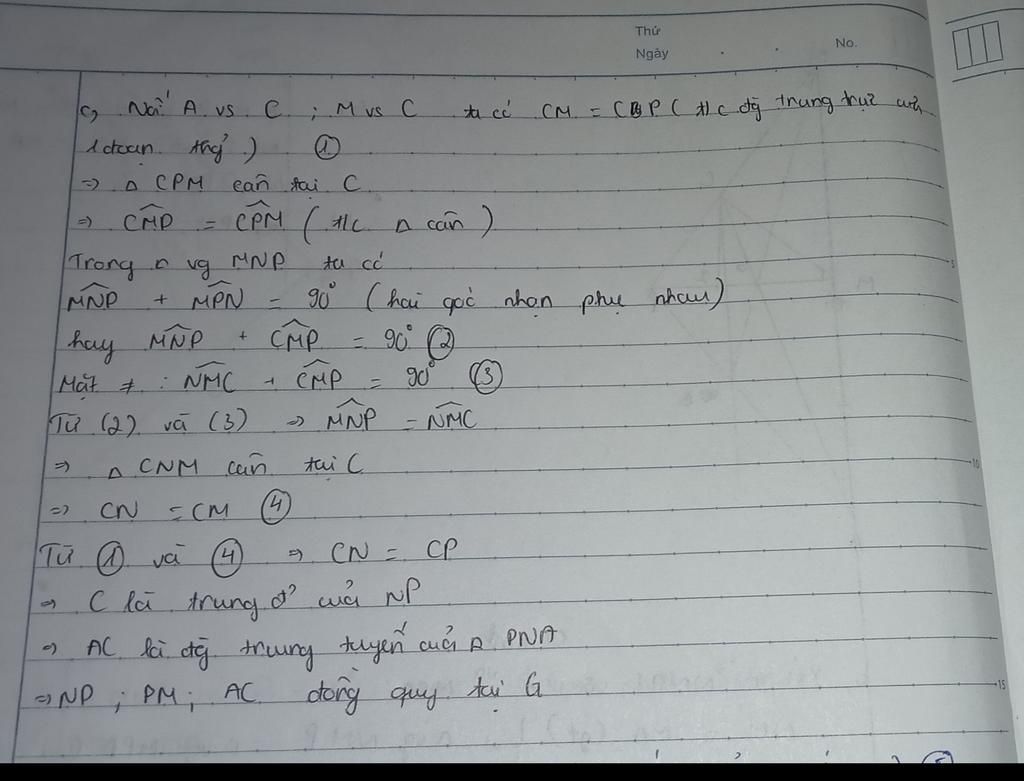 Thứ
Ngày . . No.
c, Nối A vs C ; M vs C ta có CM = CP ( t/c đg trung trực của
1 đoạn thg ) ①
=> Δ CPM cân tại C
=> CMP = CPM ( t/c Δ cân )
Trong Δ vg MNP ta có
MNP + MPN = 90° (hai góc nhọn phụ nhau)
hay MNP + CMP = 90° ②
Mặt ≠ : NMC + CMP = 90° ③
Từ (2) và (3) => MNP = NMC
=> Δ CNM cân tại C
=> CN = CM ④
Từ ① và ④ => CN = CP
=> C là trung đ' của NP
=> AC là đg trung tuyến của Δ PNA
=> NP ; PM ; AC đồng quy tại G
5
10
15